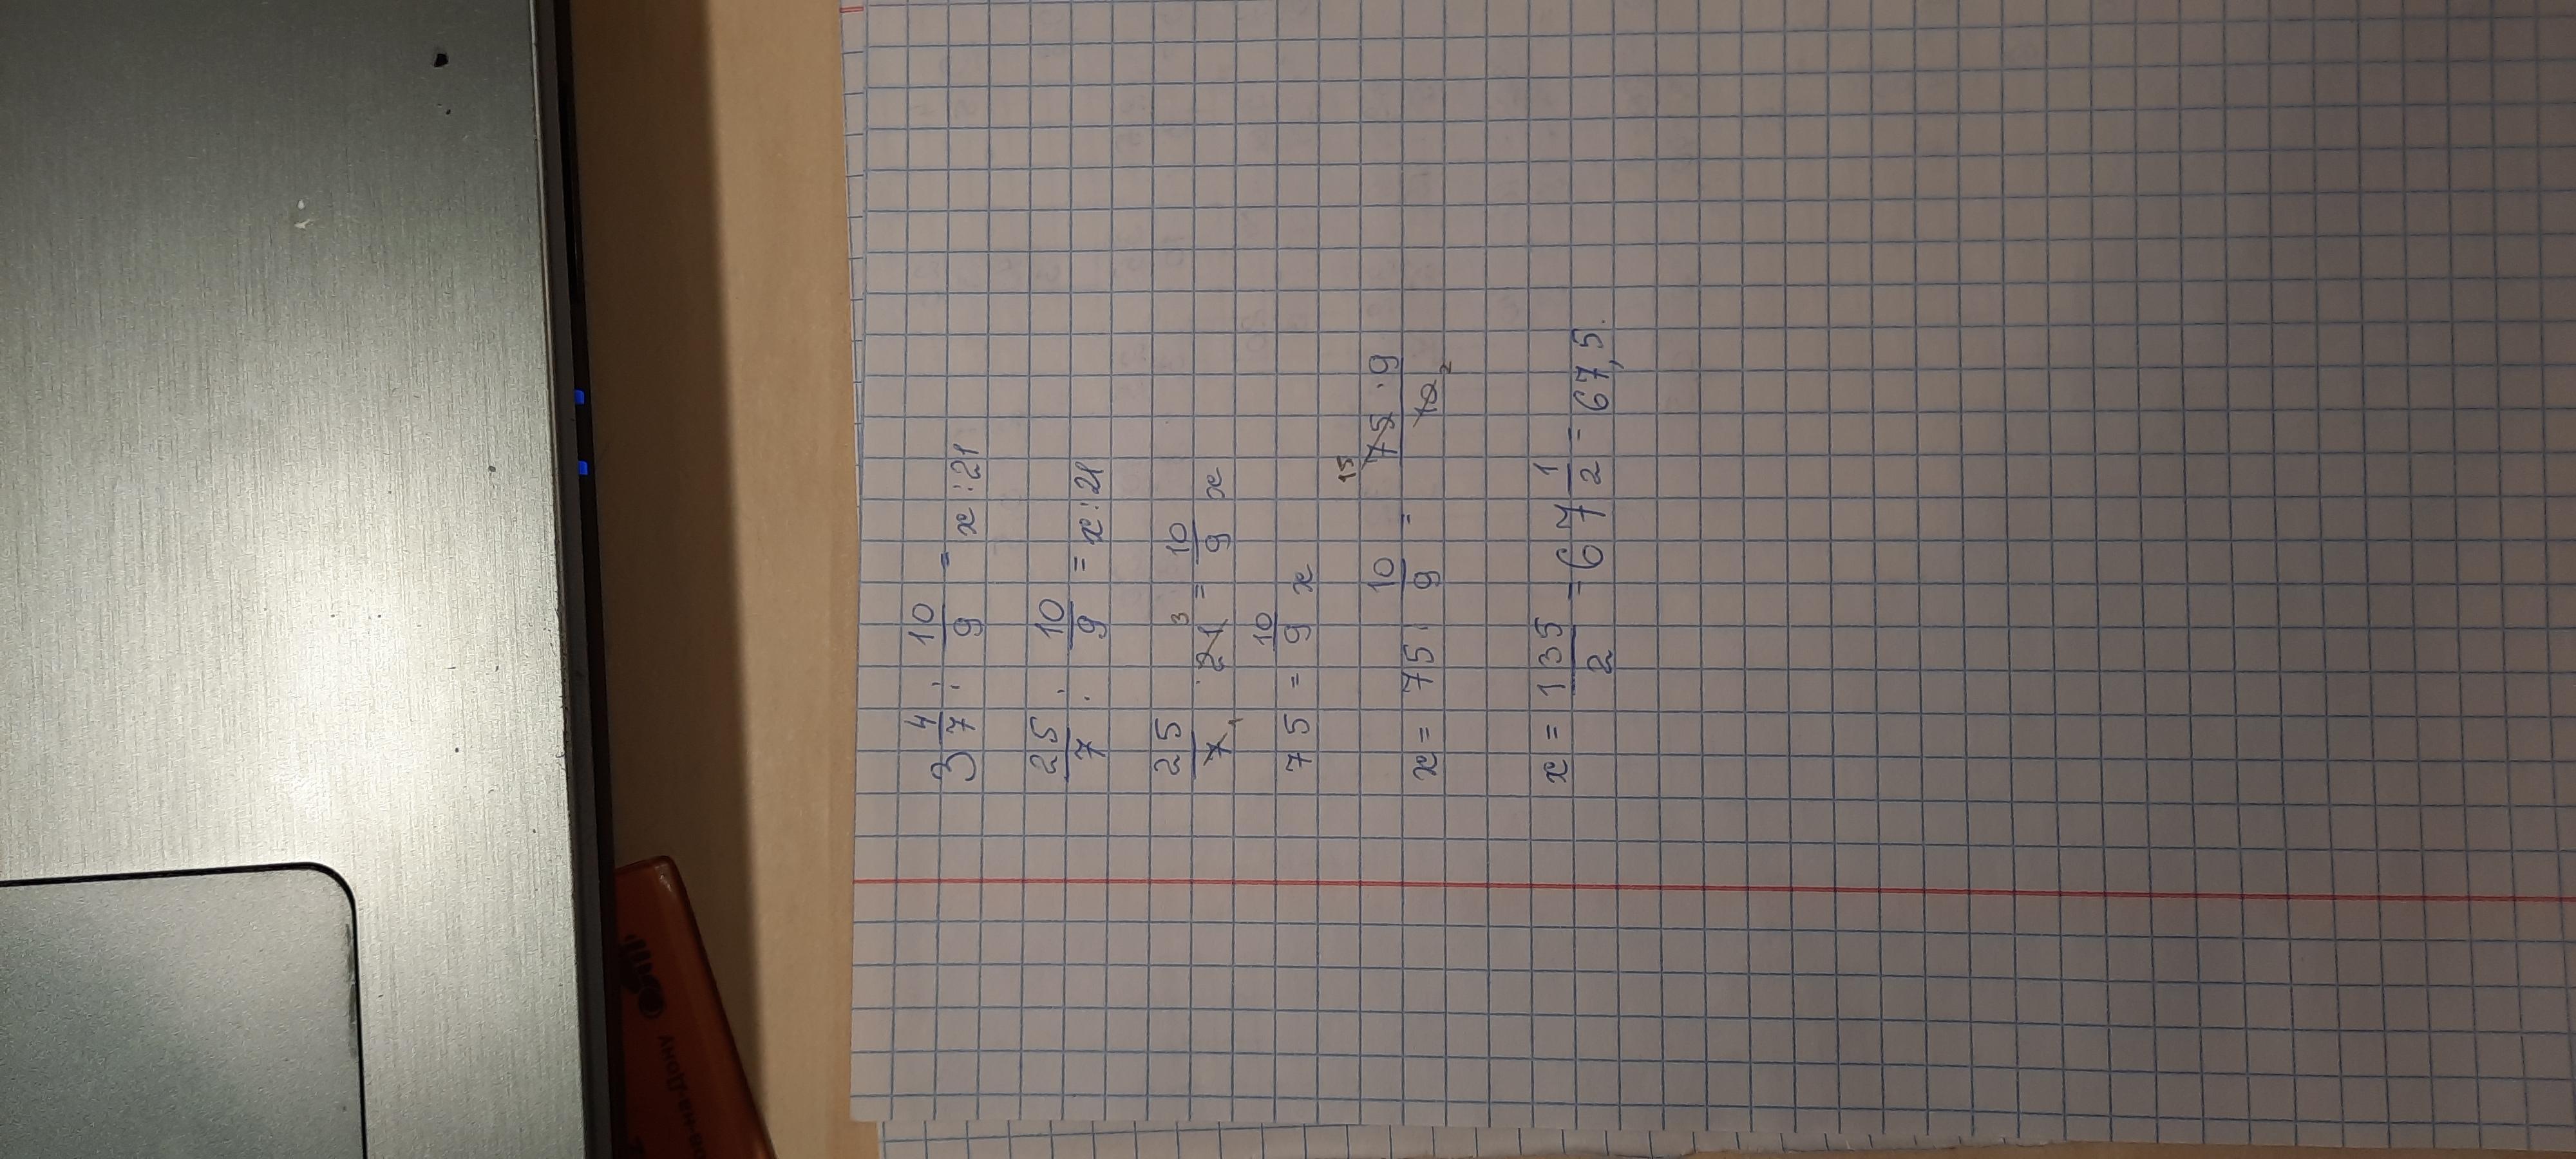 3 4/7 : 10/9 = x : 21
25/7 : 10/9 = x : 21
25/7 1 · 21 3 = 10/9 x
75 = 10/9 x
x = 75 : 10/9 = 15 75 · 9 / 10 2
x = 135/2 = 67 1/2 = 67,5.
о-на-Дону